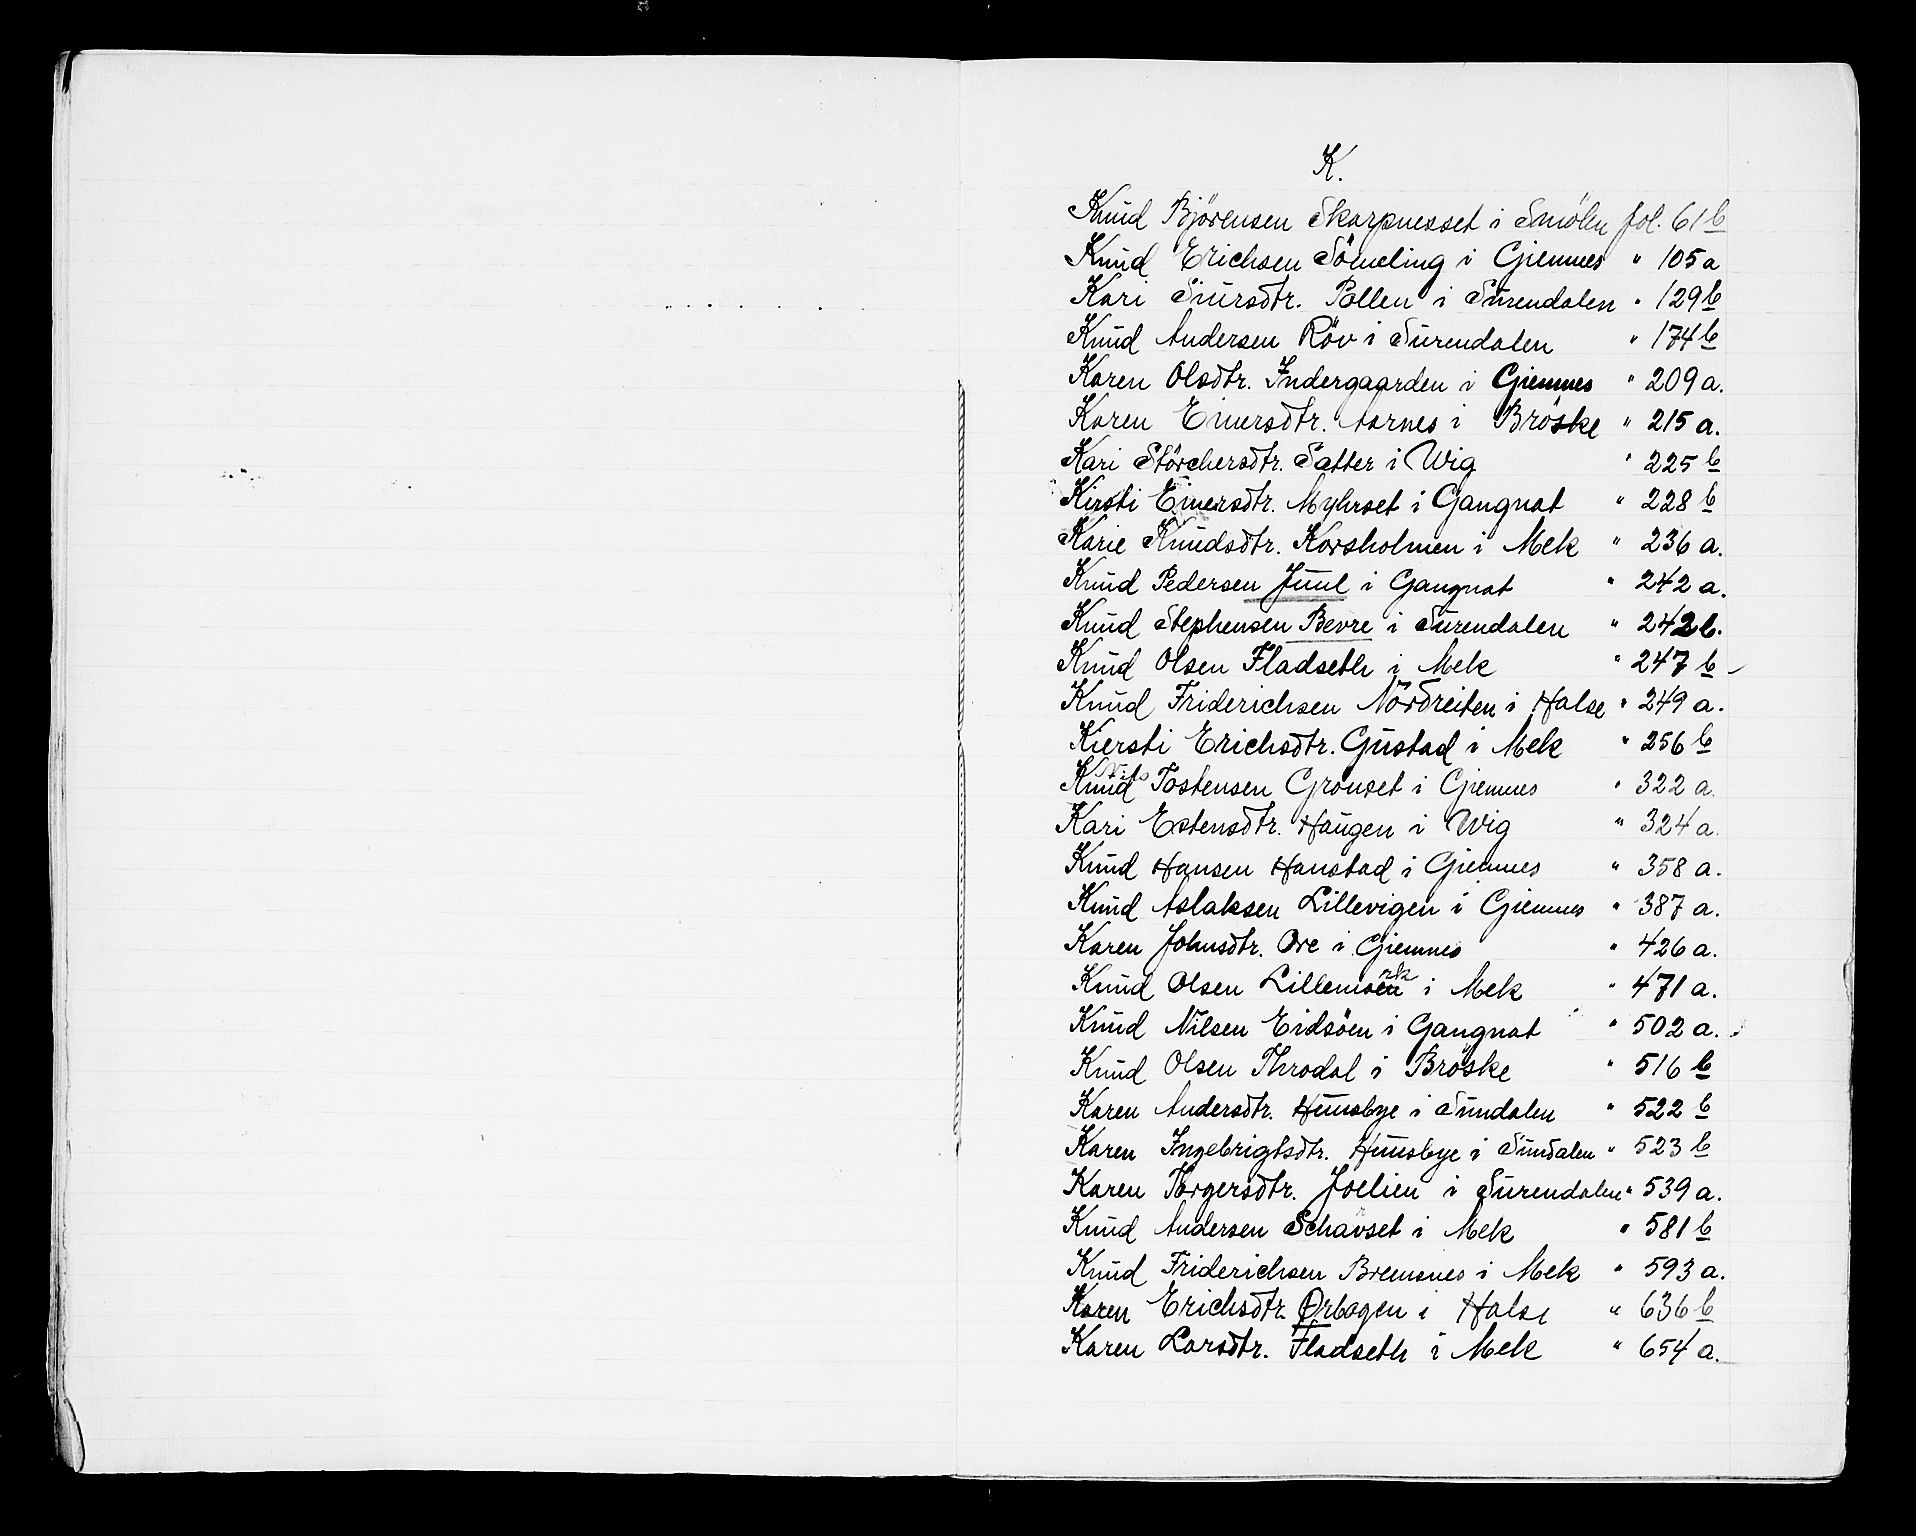 K.
Knud Björensen Skarpnesset i Smölen fol. 61 b
Knud Erichsen Sömeling i Gjemnes " 105 a
Kari Siursdtr. Pollen i Surendalen " 129 b
Knud Andersen Röv i Surendalen " 174 b
Karen Olsdtr. Indergaarden i Gjemnes " 209 a.
Karen Einersdtr. Aarnes i Bröske " 215 a.
Kari Störchersdtr. Satter i Wig " 225 b
Kirsti Einersdtr. Myhrset i Gangnat " 228 b
Karie Knudsdtr. Korsholmen i Mek " 236 a.
Knud Pedersen Juul i Gangnat " 242 a.
Knud Stephensen Bevre i Surendalen " 242 b.
Knud Olsen Fladseth i Mek " 247 b
Knud Friderichsen Nördreiten i Halse " 249 a.
Kiersti Erichsdtr. Gustad i Mek " 256 b
Knud Tostensen Grönset i Gjemnes " 322 a.
Kari Estensdtr. Haugen i Wig " 324 a.
Knud Hansen Hanstad i Gjemnes " 358 a.
Knud Aslaksen Lillevigen i Gjemnes " 387 a.
Karen Johnsdtr. Ore i Gjemnes " 426 a.
Knud Olsen i Mek " 471 a.
Knud Nilsen Eidsöen i Gangnat " 502 a.
Knud Olsen Throdal i Bröske " 516 b
Karen Andersdtr. Huusbye i Sundalen " 522 b
Karen Ingebrigtsdtr. Huusbye i Sundalen " 523 b
Karen Torgersdtr. Joelien i Surendalen " 539 a.
Knud Andersen Scharset i Mek " 581 b
Knud Friderichsen Bremsnes i Mek " 593 a.
Karen Erichsdtr. Ørbogen i Halse " 636 b
Karen Larsdtr. Fladseth i Mek " 654 a.